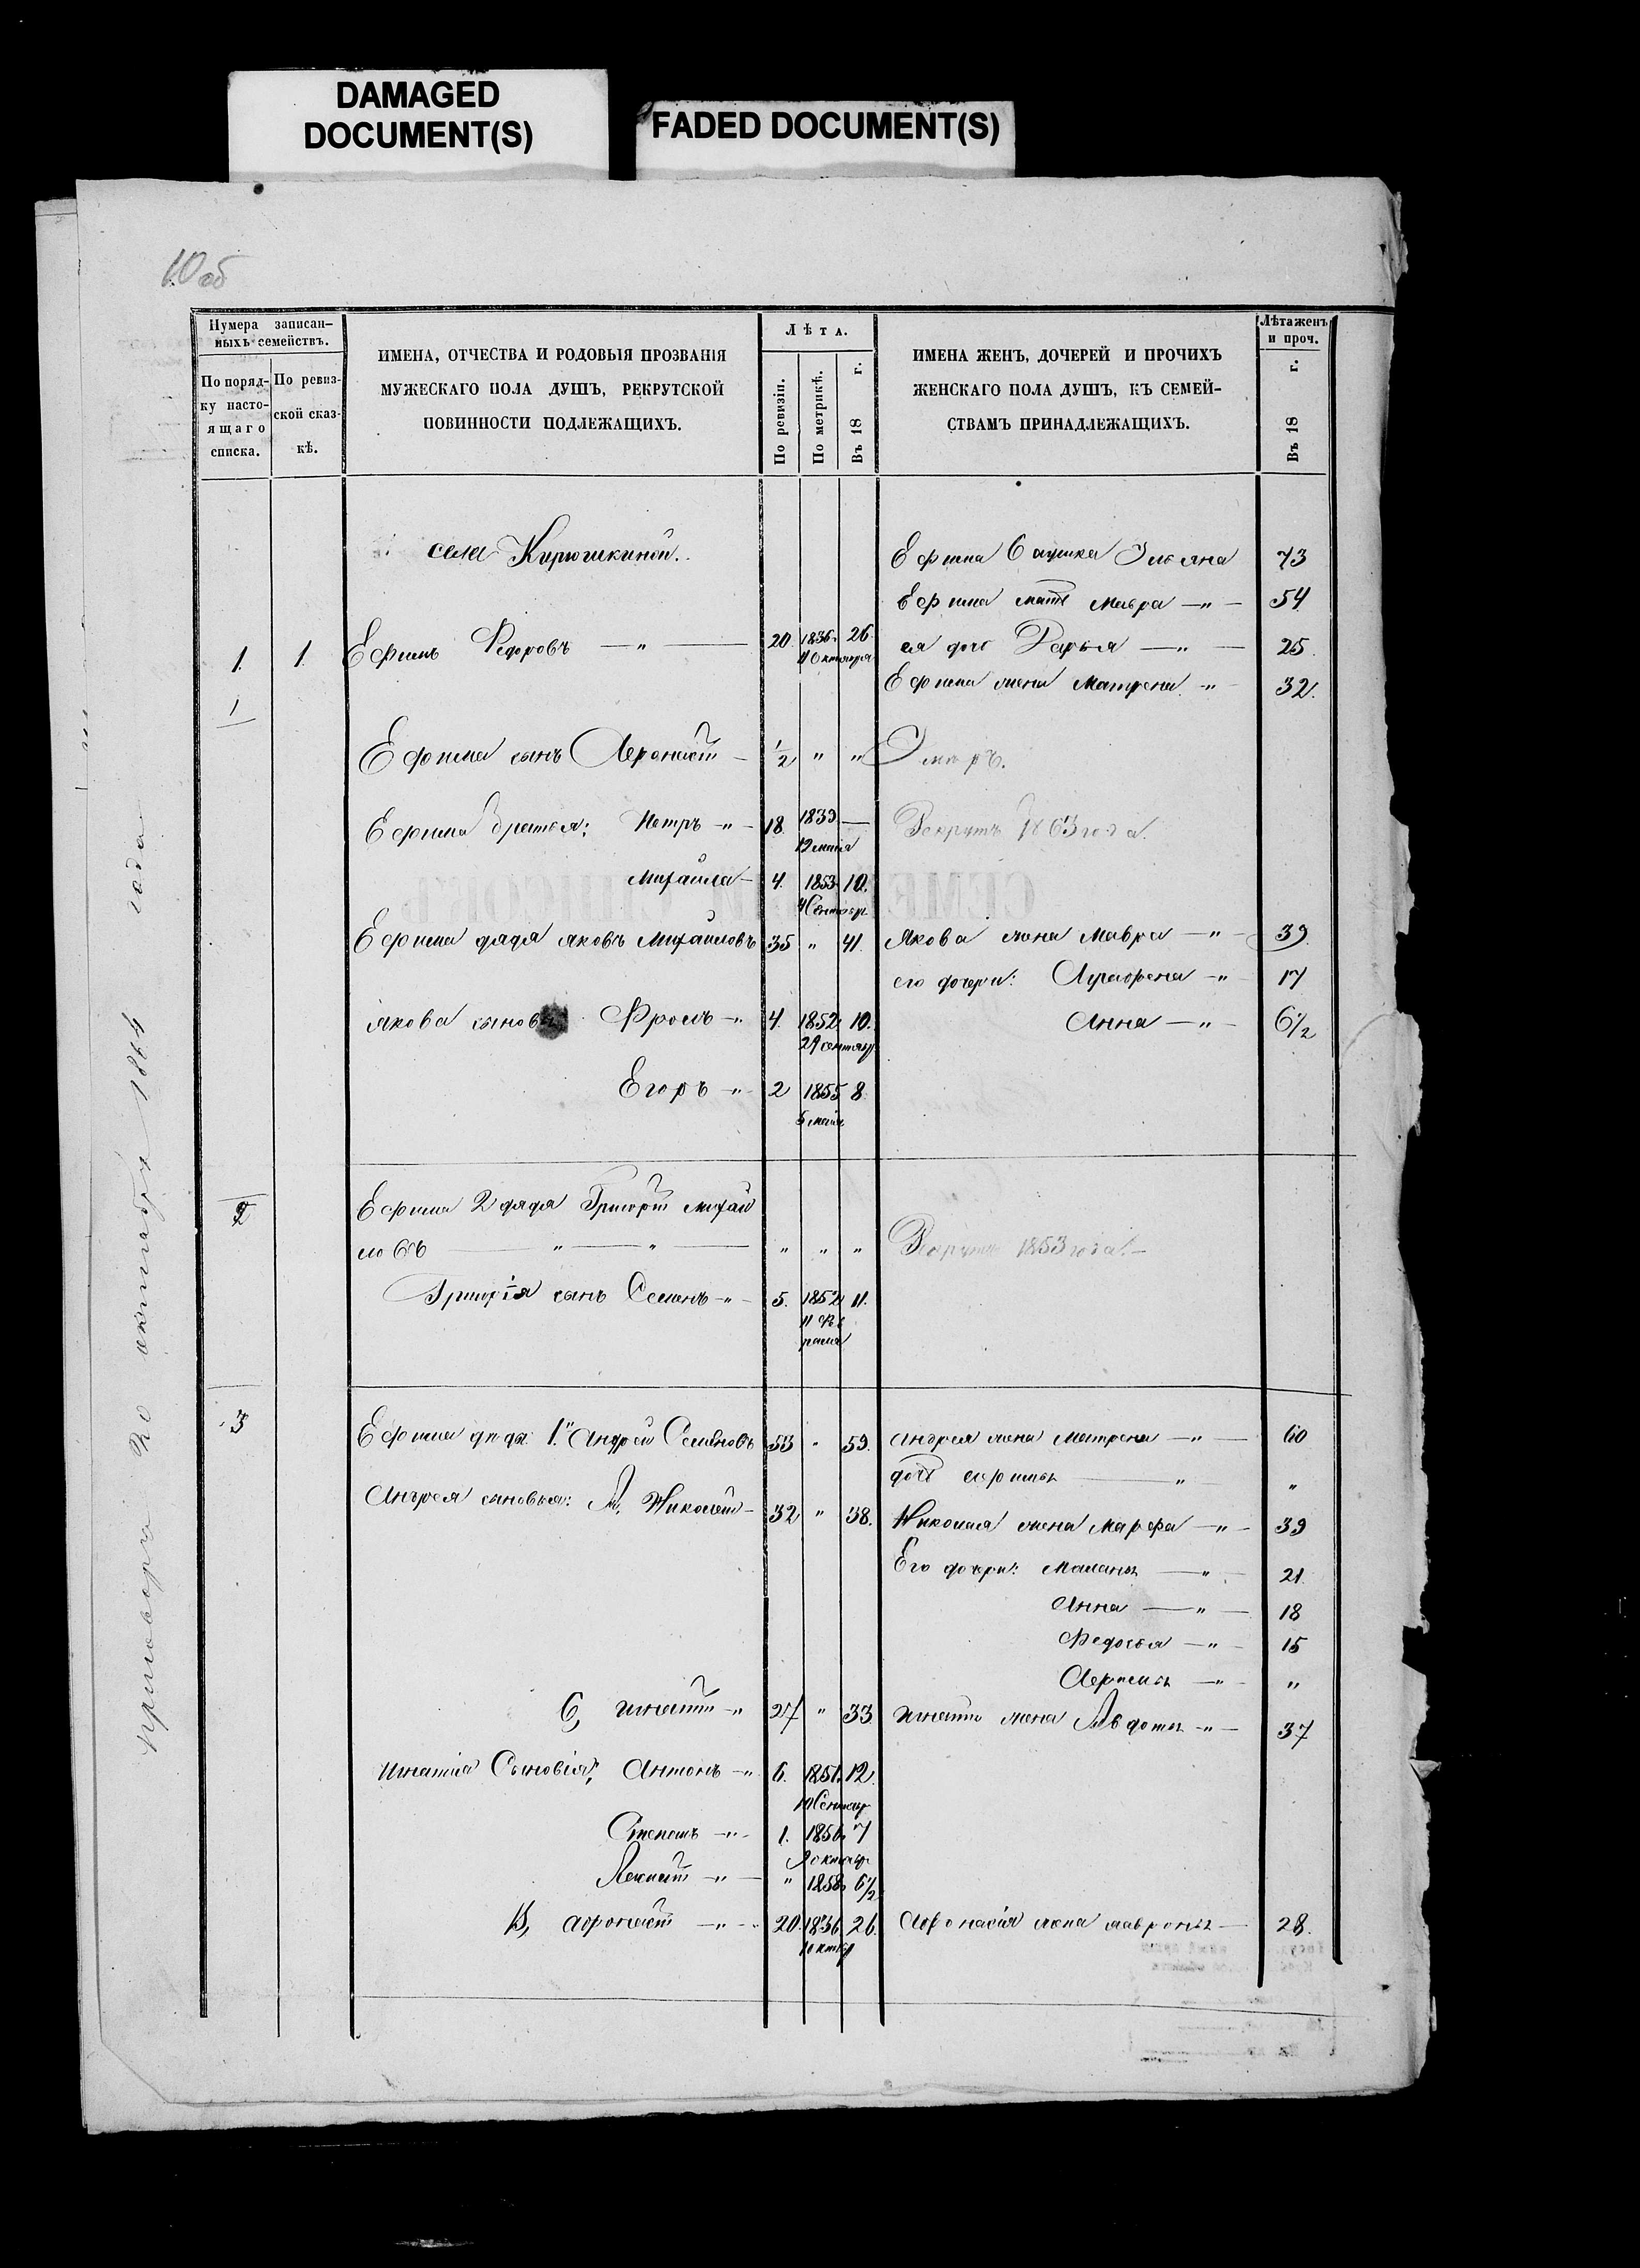 DAMAGED
DOCUMENT(S)
FADED DOCUMENT(S)
10 об
Нумера записан-
ныхъ семействъ.
По поряд-
ку насто-
ящаго
списка.
По ревиз-
ской сказ-
кѣ.
ИМЕНА, ОТЧЕСТВА И РОДОВЫЯ ПРОЗВАНІЯ
МУЖЕСКАГО ПОЛА ДУШЪ, РЕКРУТСКОЙ
ПОВИННОСТИ ПОДЛЕЖАЩИХЪ.
Лѣта.
По ревизіи.
По метрикѣ.
Въ 18 г.
ИМЕНА ЖЕНЪ, ДОЧЕРЕЙ И ПРОЧИХЪ
ЖЕНСКАГО ПОЛА ДУШЪ, КЪ СЕМЕЙ-
СТВАМЪ ПРИНАДЛЕЖАЩИХЪ.
Лѣта женъ
и проч.
Въ 18 г.
села Кирюшкиной.
Ефима бапушка Ульяна 73
Ефима мать Мавра — " — 54
1. 1. Ефимъ Федоровъ — " — 20. 1836. 26. ея дочь Дарья — " — 25.
4 Октября
Ефима жена Матрена " — 32.
1
Ефима сынъ Афонасій — 1/2 " " Умеръ.
Ефима братья: Петръ — " — 18. 1839 — Рекрутъ 1863 года.
12 мая
Михаила — 4. 1853 10.
4 Сентябр
Ефима дядя Яковъ Михаиловъ 35 " 41. Якова жена Мавра — " — 39.
его дочери: Аграфена — " — 17
Якова сыновья Фролъ — " 4. 1852 10. Анна — " — 6 1/2
29 сентяб
Егоръ — " 2 1855 8.
5 мая
2
Ефима 2 дядя Григорій Михаи
ловъ — " — " — " " " Рекрутъ 1853 года. —
Григорія сынъ Семенъ — " 5. 1852 11.
11 Фев
раля
3
Ефима дядя 1.й Андрей Семеновъ 53 " 59. Андрея жена Матрена — " — 60
дочь Афимья — " "
Андрея сыновья: А, Николай — 32 " 38. Николая жена Марфа — " — 39
Его дочери: Маланья — " — 21.
Анна — " — 18
Федосья — " — 15
Афимья — " — "
Б, Игнатій — " 27 " 33 Игнатія жена Авдотья — " — 37
Игнатія Сыновія: Антонъ — " 6. 1851. 12.
10 Сентяб
Степанъ — " 1. 1856 7
октяб
" 1858 6 1/2
В, Афонасій — " 20. 1836 26. Афонасія жена Мавронья — 28.
октяб
приговора 20 октября 1864 года